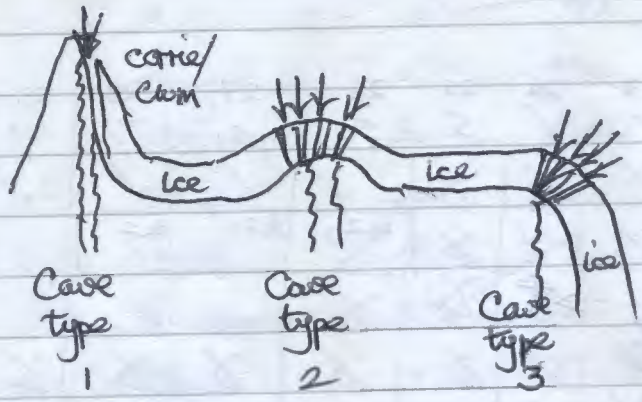 corrie/
cwm
ice
ice
ice
Cave
type
1
Cave
type
2
Cave
type
3